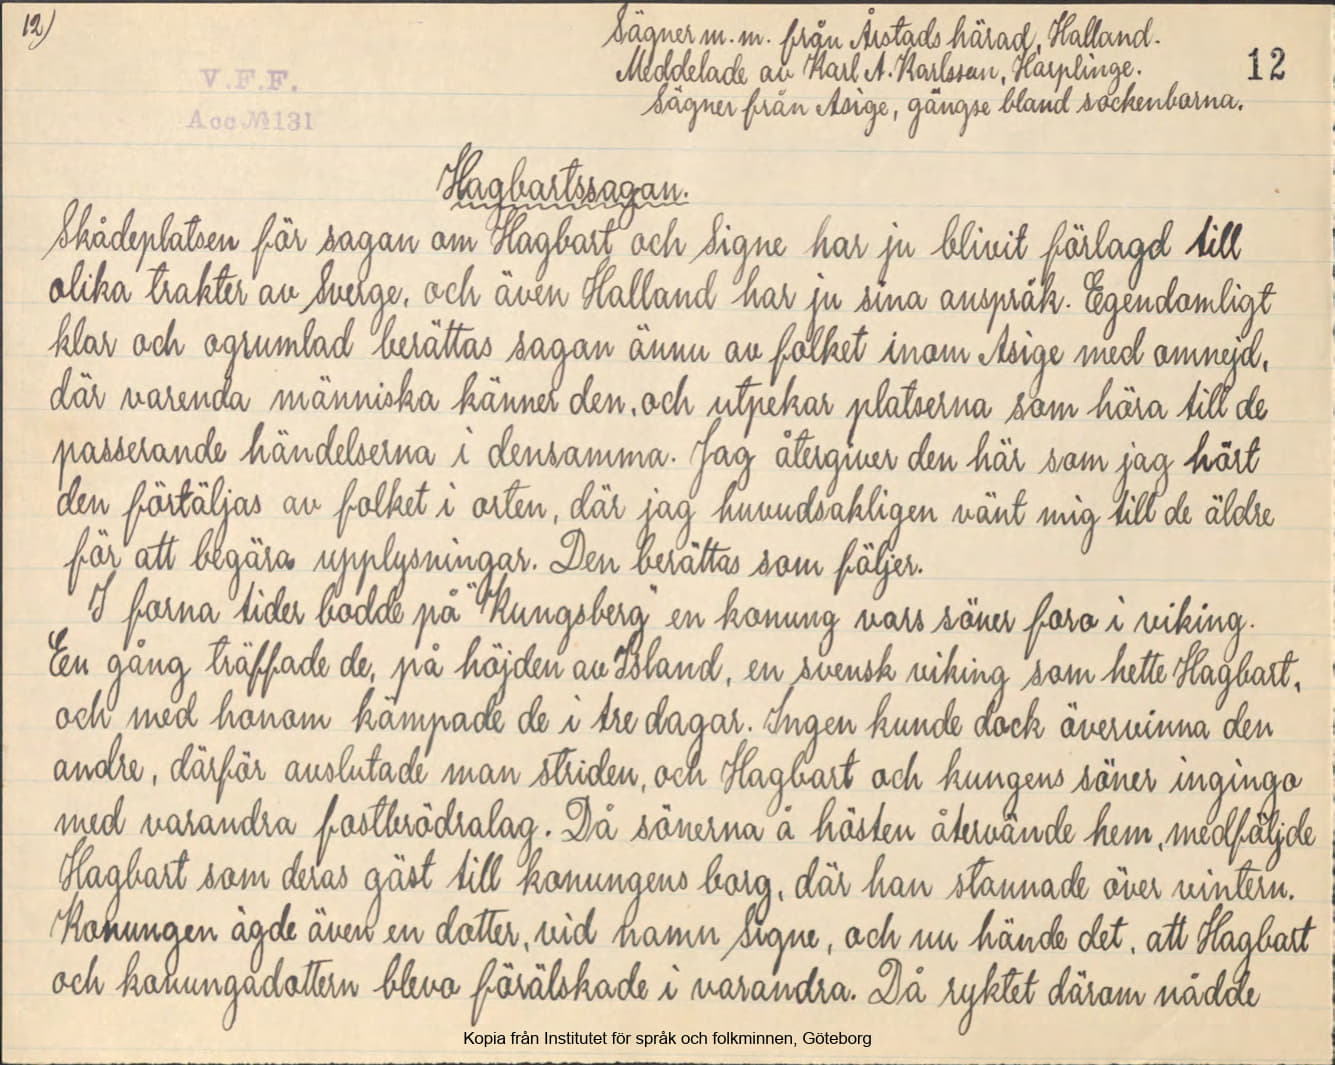 12)
Sägner m.m. från Årstads härad, Halland.
Meddelade av Karl A. Karlsson, Harplinge.
12
V.F.F.
Acc № 131
Sägner från Asige, gängse bland sockenborna.
Hagbartssagan.
Skådeplatsen för sagan om Hagbart och Signe har ju blivit förlagd till
olika trakter av Sverge, och även Halland har ju sina anspråk. Egendomligt
klar och ogrumlad berättas sagan ännu av folket inom Asige med omnejd,
där varenda människa känner den, och utpekar platserna som höra till de
passerande händelserna i densamma. Jag återgiver den här som jag hört
den förtäljas av folket i orten, där jag huvudsakligen vänt mig till de äldre
för att begära upplysningar. Den berättas som följer.
I forna tider bodde på "Kungsberg" en konung vars söner foro i viking.
Een gång träffade de, på höjden av Island, en svensk viking som hette Hagbart,
och med honom kämpade de i tre dagar. Ingen kunde dock övervinna den
andre, därför avslutade man striden, och Hagbart och kungens söner ingingo
med varandra fostbrödralag. Då sönerna å hösten återvände hem, medföljde
Hagbart som deras gäst till konungens borg, där han stannade över vintern.
Konungen ägde även en dotter, vid namn Signe, och nu hände det, att Hagbart
och konungadottern blevo förälskade i varandra. Då ryktet därom nådde
Kopia från Institutet för språk och folkminnen, Göteborg